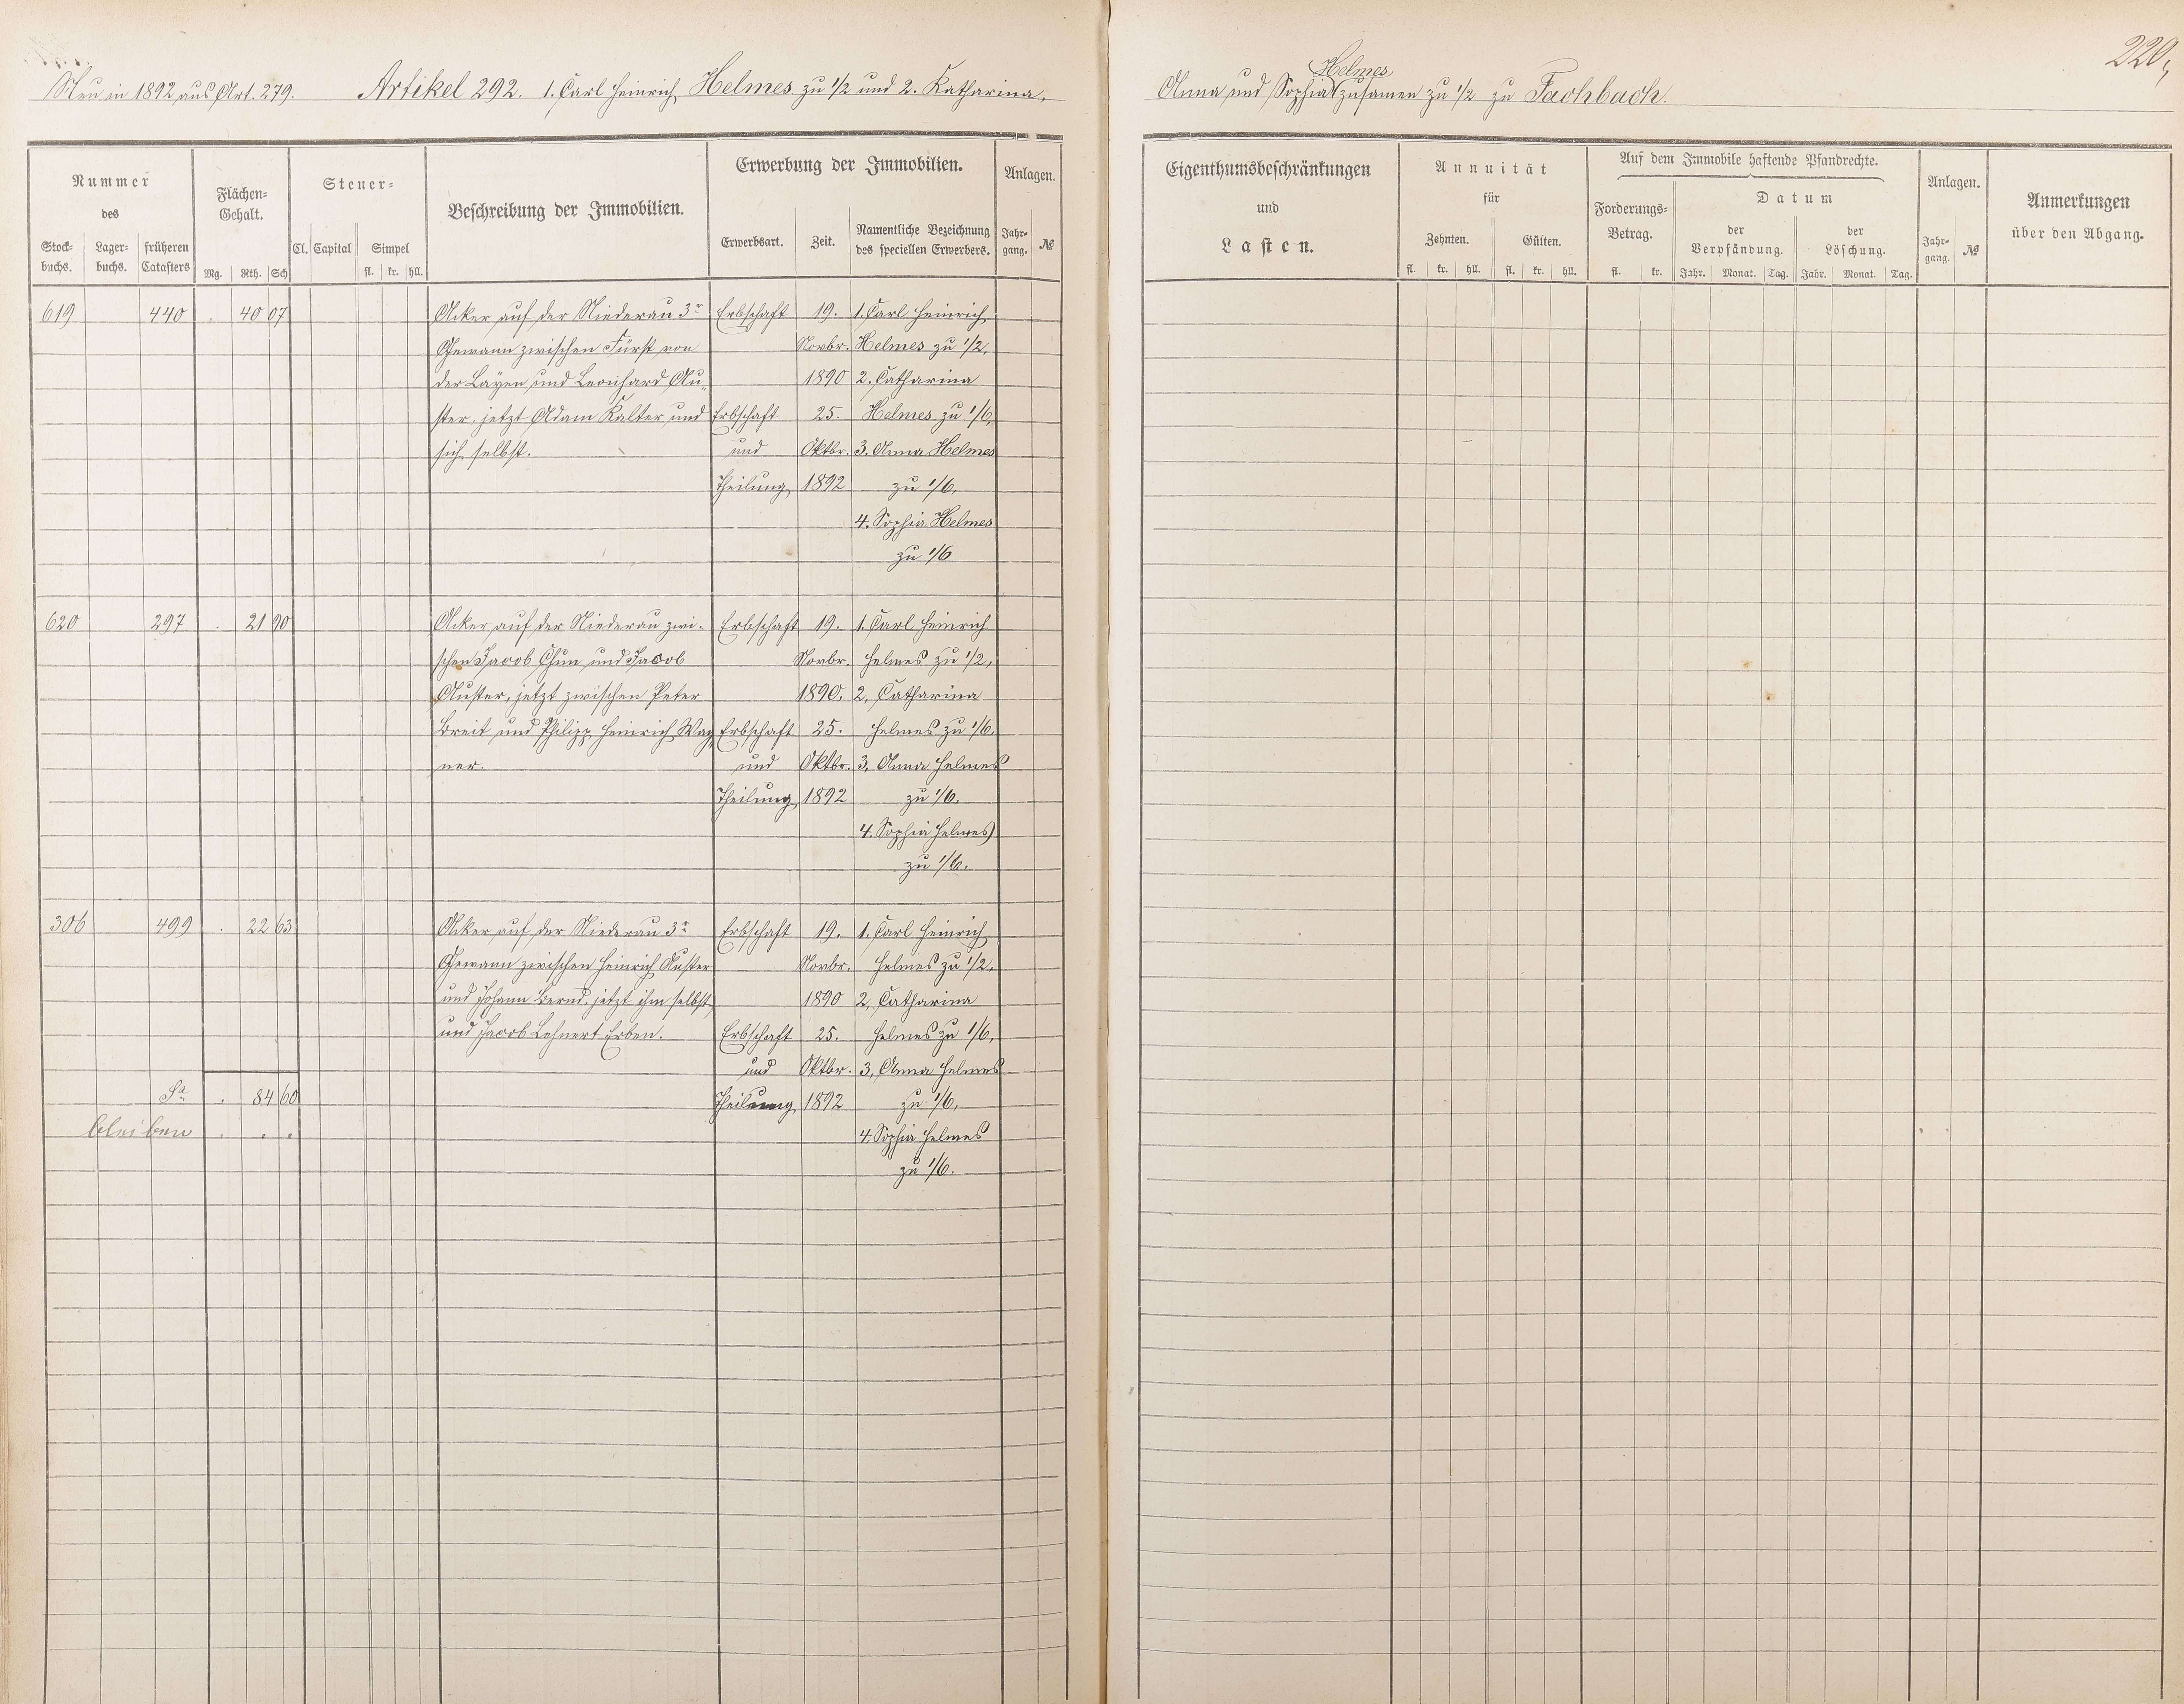 220,
Neu in 1892 aus Art. 279. Artikel 292. 1. Carl Heinrich Helmes zu 1/2 und 2. Katharina,
Helmes
Anna und Sophia zusamen zu 1/2 zu Fachbach.
Nummer des
Stock-buchs. Lager-buchs. früheren Catasters
Flächen-Gehalt.
Mg. Rth. Sch
Steuer-
Cl. Capital Simpel
fl. kr. hll.
Beschreibung der Immobilien.
Erwerbung der Immobilien.
Erwerbsart. Zeit. Namentliche Bezeichnung des speciellen Erwerbers.
Anlagen.
Jahr-gang. №
Eigenthumsbeschränkungen
und
Lasten.
Annuität
für
Zehnten. Gülten.
fl. kr. hll. fl. kr. hll.
Auf dem Immobile haftende Pfandrechte.
Forderungs-Betrag.
fl. kr.
Datum
der Verpfändung. der Löschung.
Jahr. Monat. Tag. Jahr. Monat. Tag.
Anlagen.
Jahr-gang. №
Anmerkungen
über den Abgang.
619 440 . 40 07 Acker auf der Niederau 3r Erbschaft 19. 1. Carl Heinrich
Gewann zwischen Fürst von Novbr. Helmes zu 1/2,
der Layen und Leonhard Au- 1890 2. Catharina
ster, jetzt Adam Kalter und Erbschaft 25. Helmes zu 1/6,
sich selbst. und Oktbr. 3. Anna Helmes
Theilung 1892 zu 1/6,
4. Sophia Helmes
zu 1/6
620 297 . 21 90 Acker auf der Niederau zwi- Erbschaft 19. 1. Carl Heinrich
schen Jacob Chun und Jacob Novbr. Helmes zu 1/2,
Auster, jetzt zwischen Peter 1890. 2, Catharina
Breit und Philipp Heinrich Wag Erbschaft 25. Helmes zu 1/6.
ner. und Oktbr. 3, Anna Helmes
Theilung 1892 zu 1/6.
4. Sophia Helmes
zu 1/6.
306 499 . 22 63 Acker auf der Niederau 3r Erbschaft 19. 1. Carl Heinrich
Gewann zwischen Heinrich Auster Novbr. Helmes zu 1/2,
und Johann Bernd, jetzt ihm selbst 1890 2, Catharina
und Jacob Lehnert Erben. Erbschaft 25. Helmes zu 1/6,
und Oktbr. 3, Anna Helmes
Sa . 84 60 Theilung 1892 zu 1/6,
bleiben . . . 4. Sophia Helmes
zu 1/6.